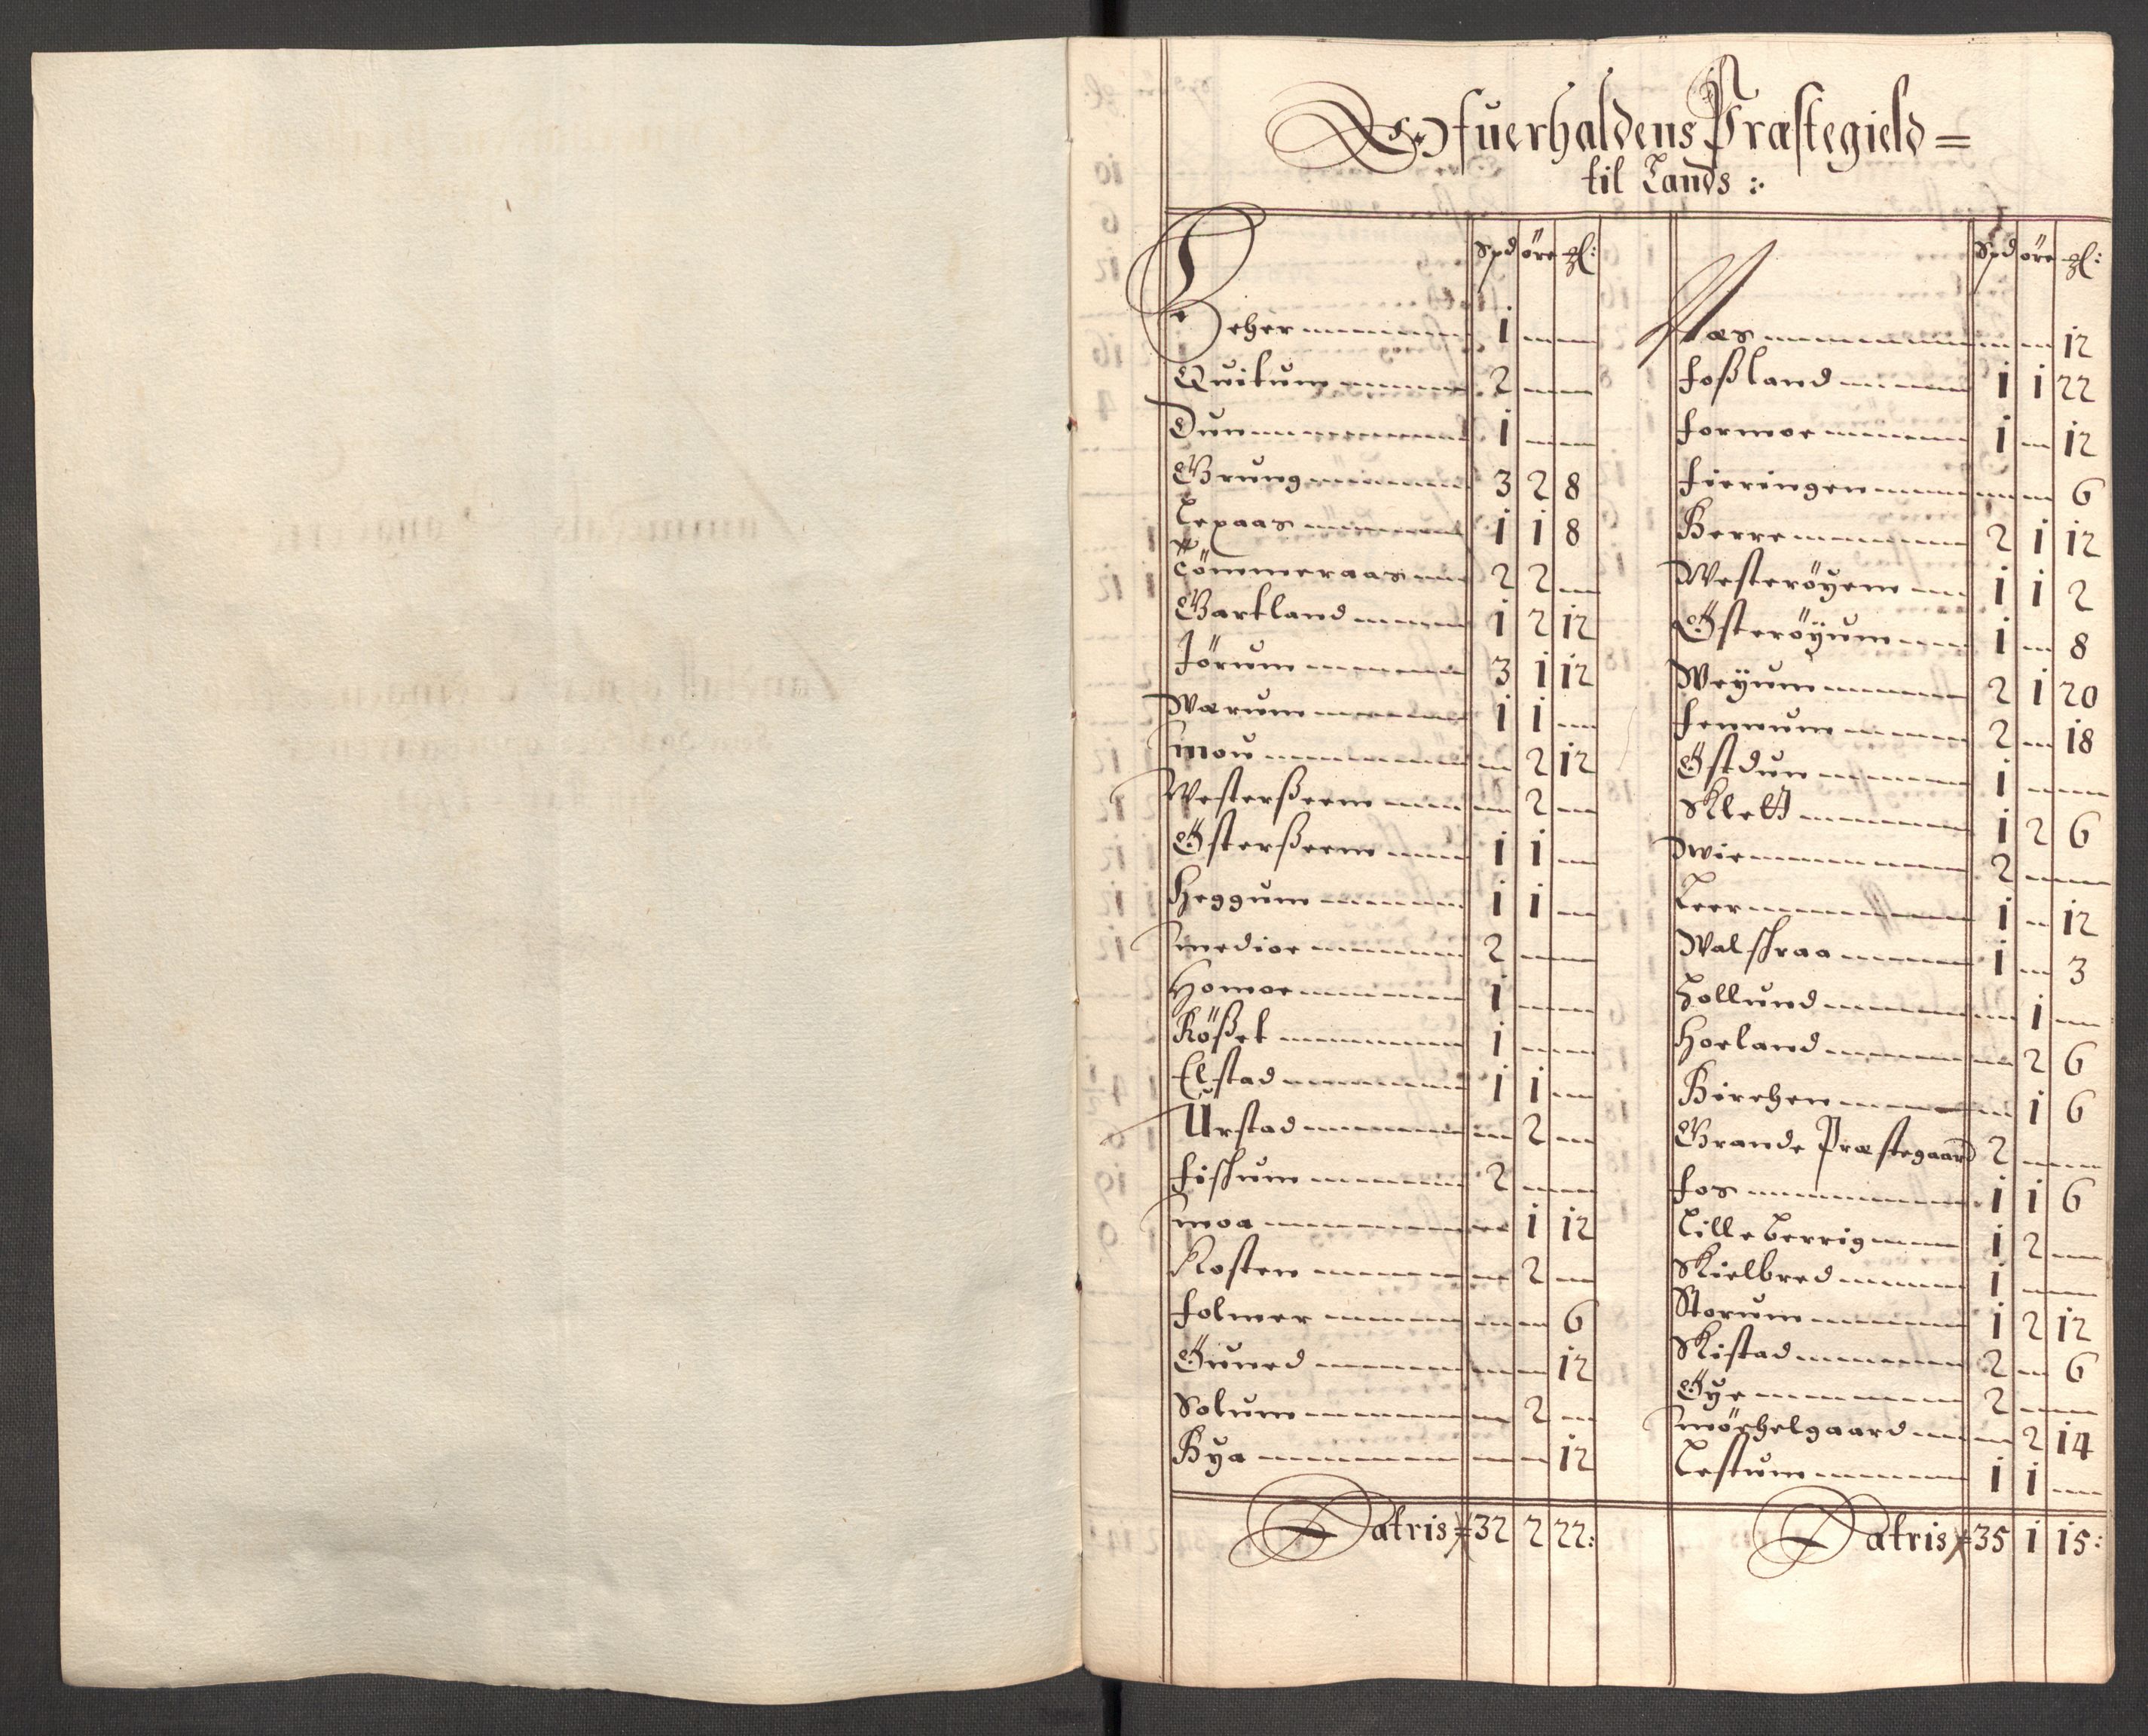 Ofuerhaldens Præstegield =
til Lands :
Spd öre gl:
Teher 1
Quitum 2
Dun 1
Grung 3 2 8
Lepaas 1 1 8
Tömmeraas 2 2
Gartland 1 2 12
Jörum 3 1 12
Wærum 1 1
mou 2 12
Westerßeem 2
Österßeem 1 1
Heggum 1 1
medioe 2
Homoe 1
Rößet 1
Elstad 1 1
Urstad 2
Fishum 2
moa 1 12
Rosten 2
Folmer 6
Öuned 12
Solum 2
Bya 12
Latris 32 2 22:
Spd öre gl:
Næs 12
Foßland 1 1 22
Formoe 1 12
Fieringen 6
Berre 2 1 12
Westeröyem 1 1 2
Österöyum 1 8
Weyum 2 1 20
Femvum 2 18
Östdun 1
Klett 1 2 6
Wie 2
Leer 1 12
Walskraa 1 3
Hollund 1
Horland 2 6
Birchen 1 6
Grande Præstegaard 2
Fos 1 1 6
Lille Berrig 1 2
Skielbred 1
Storum 1 2 12
Skistad 2 6
Öye 2
mörchelgaard 2 14
Lestum 1 1
Latris 35 1 15: